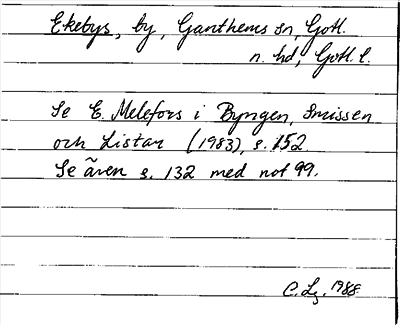 Ekebys, by, Ganthems sn, Gotl.
n. hd, Gotl. l.
Se E. Melefors i Byngen, Smissen
och Listar (1983), s. 152.
Se även s. 132 med not 99.
C. Lg. 1988.